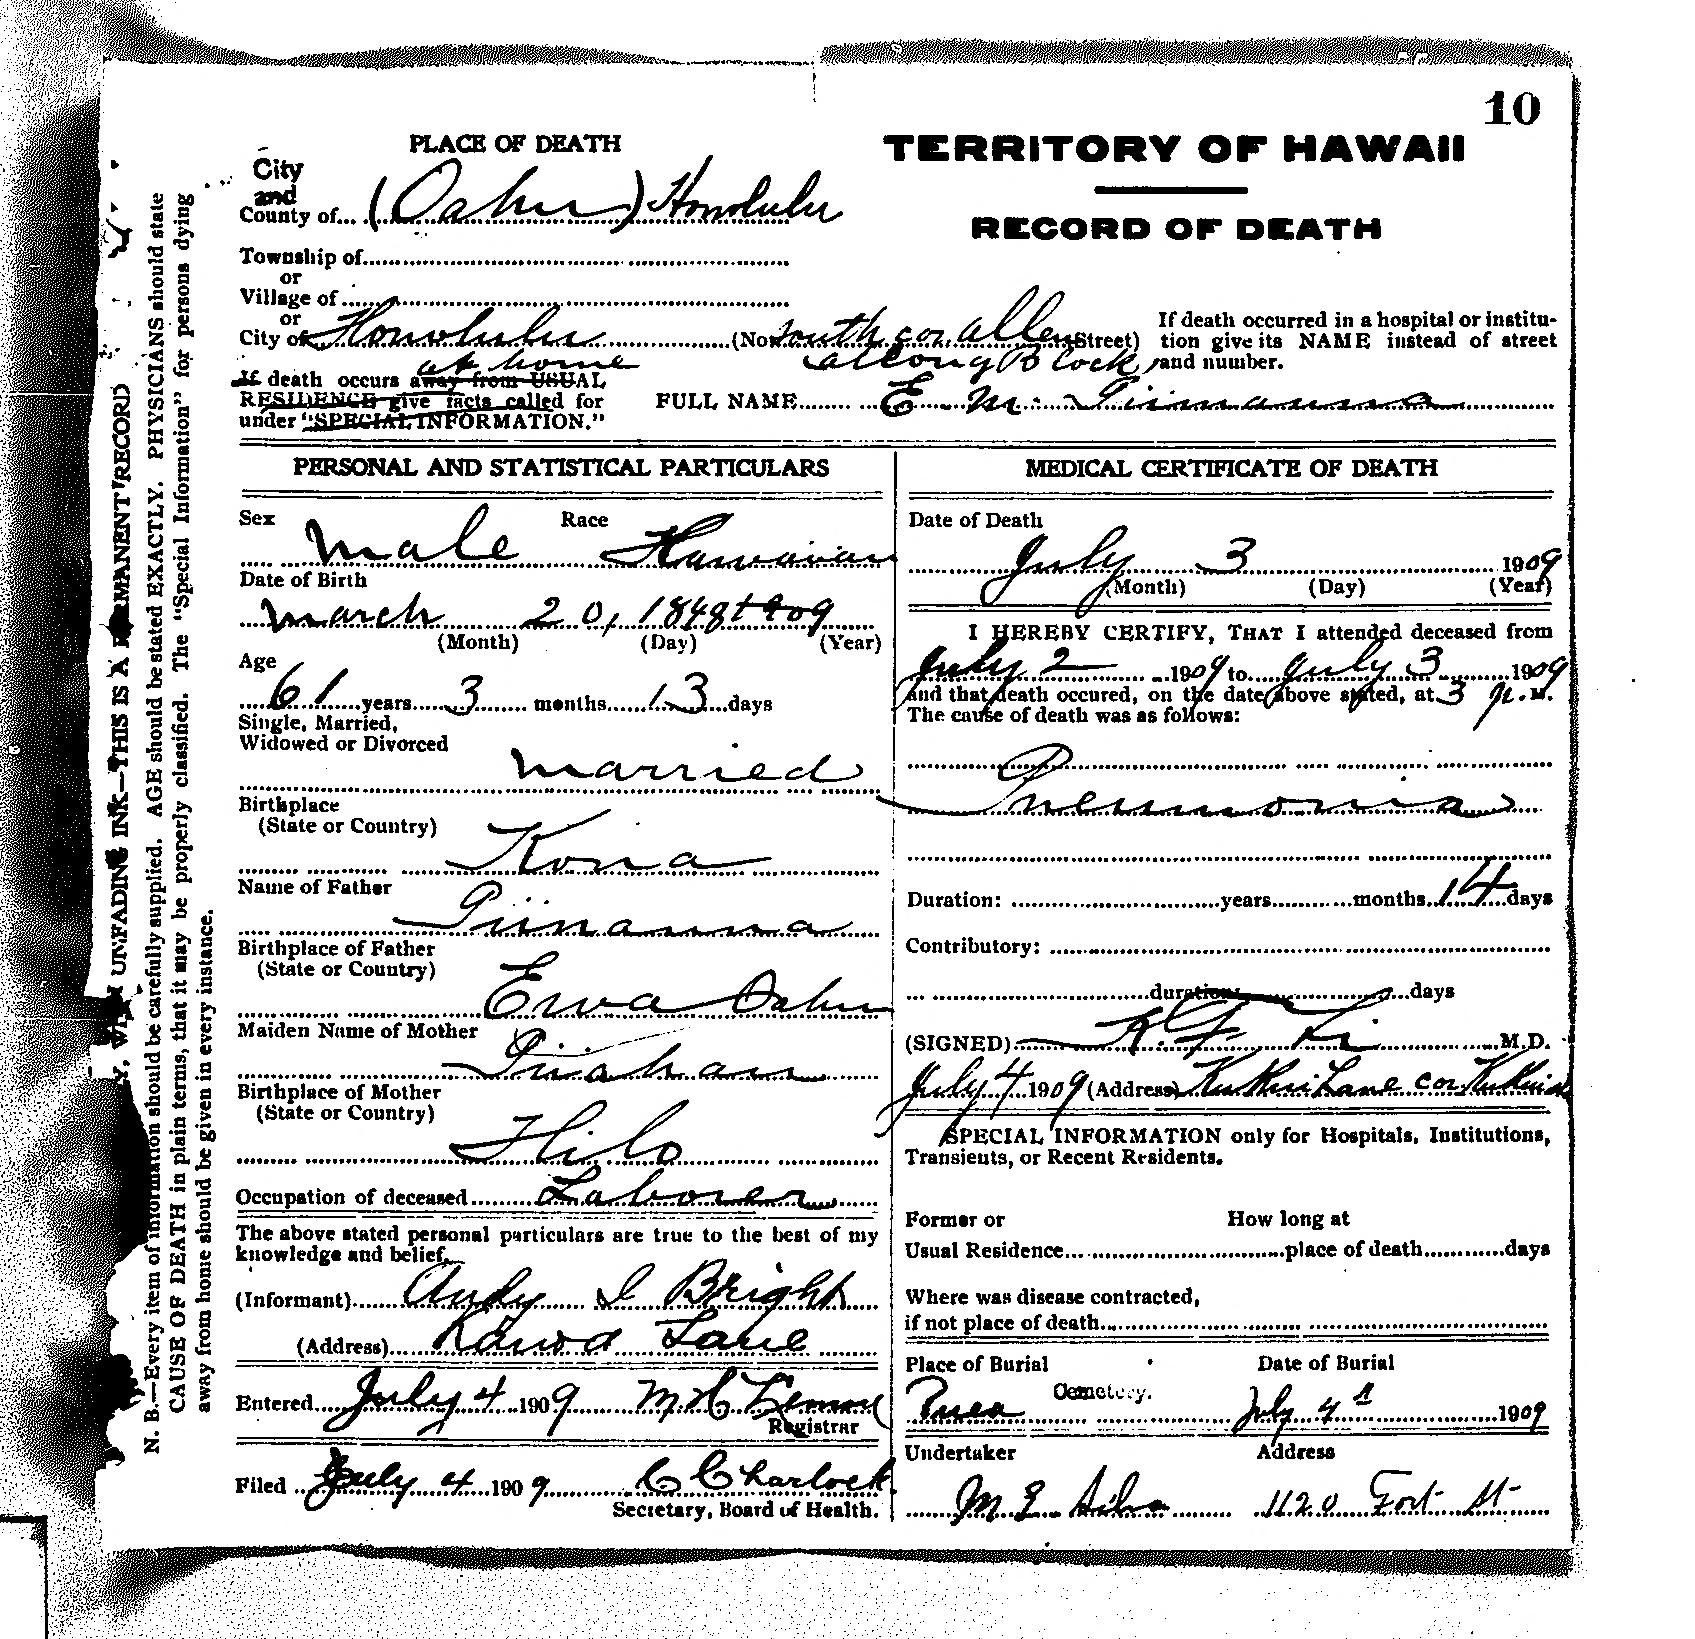 10
PLACE OF DEATH
TERRITORY OF HAWAII
RECORD OF DEATH
City
and
County of (Oahu) Honolulu
Township of
or
Village of
or
City of Honolulu (No South cor Allen Street)
Block
If death occurred in a hospital or institu-
tion give its NAME instead of street
and number.
at home
If death occurs away from USUAL
RESIDENCE give facts called for
under "SPECIAL INFORMATION."
FULL NAME E. M.
PERSONAL AND STATISTICAL PARTICULARS
Sex Race
Male Hawaiian
Date of Birth
March 20, 1848 1909
(Month) (Day) (Year)
Age
61 years 3 months 13 days
Single, Married,
Widowed or Divorced
Married
Birthplace
(State or Country)
Kona
Name of Father
Birthplace of Father
(State or Country)
Ewa Oahu
Maiden Name of Mother
Birthplace of Mother
(State or Country)
Hilo
Occupation of deceased Laborer
The above stated personal particulars are true to the best of my
knowledge and belief.
(Informant) Andy I Bright
(Address) Lane
Entered July 4 1909 M H Lemon
Registrar
Filed July 4 1909 C Charlock
Secretary, Board of Health.
MEDICAL CERTIFICATE OF DEATH
Date of Death
July 3 1909
(Month) (Day) (Year)
I HEREBY CERTIFY, THAT I attended deceased from
July 2 1909 to July 3 1909
and that death occured, on the date above stated, at 3 p.M.
The cause of death was as follows:
Pneumonia
Duration: years months 14 days
Contributory:
duration days
(SIGNED) K. F. Li M.D.
July 4 1909 (Address) Lane cor
SPECIAL INFORMATION only for Hospitals, Institutions,
Transients, or Recent Residents.
Former or How long at
Usual Residence place of death days
Where was disease contracted,
if not place of death
Place of Burial Date of Burial
Puea Cemetery. July 4 1909
Undertaker Address
M E Silva 1120 Fort St
N. B.—Every item of information should be carefully supplied. AGE should be stated EXACTLY. PHYSICIANS should state
CAUSE OF DEATH in plain terms, that it may be properly classified. The "Special Information" for persons dying
away from home should be given in every instance.
UNFADING INK—THIS IS A PERMANENT RECORD